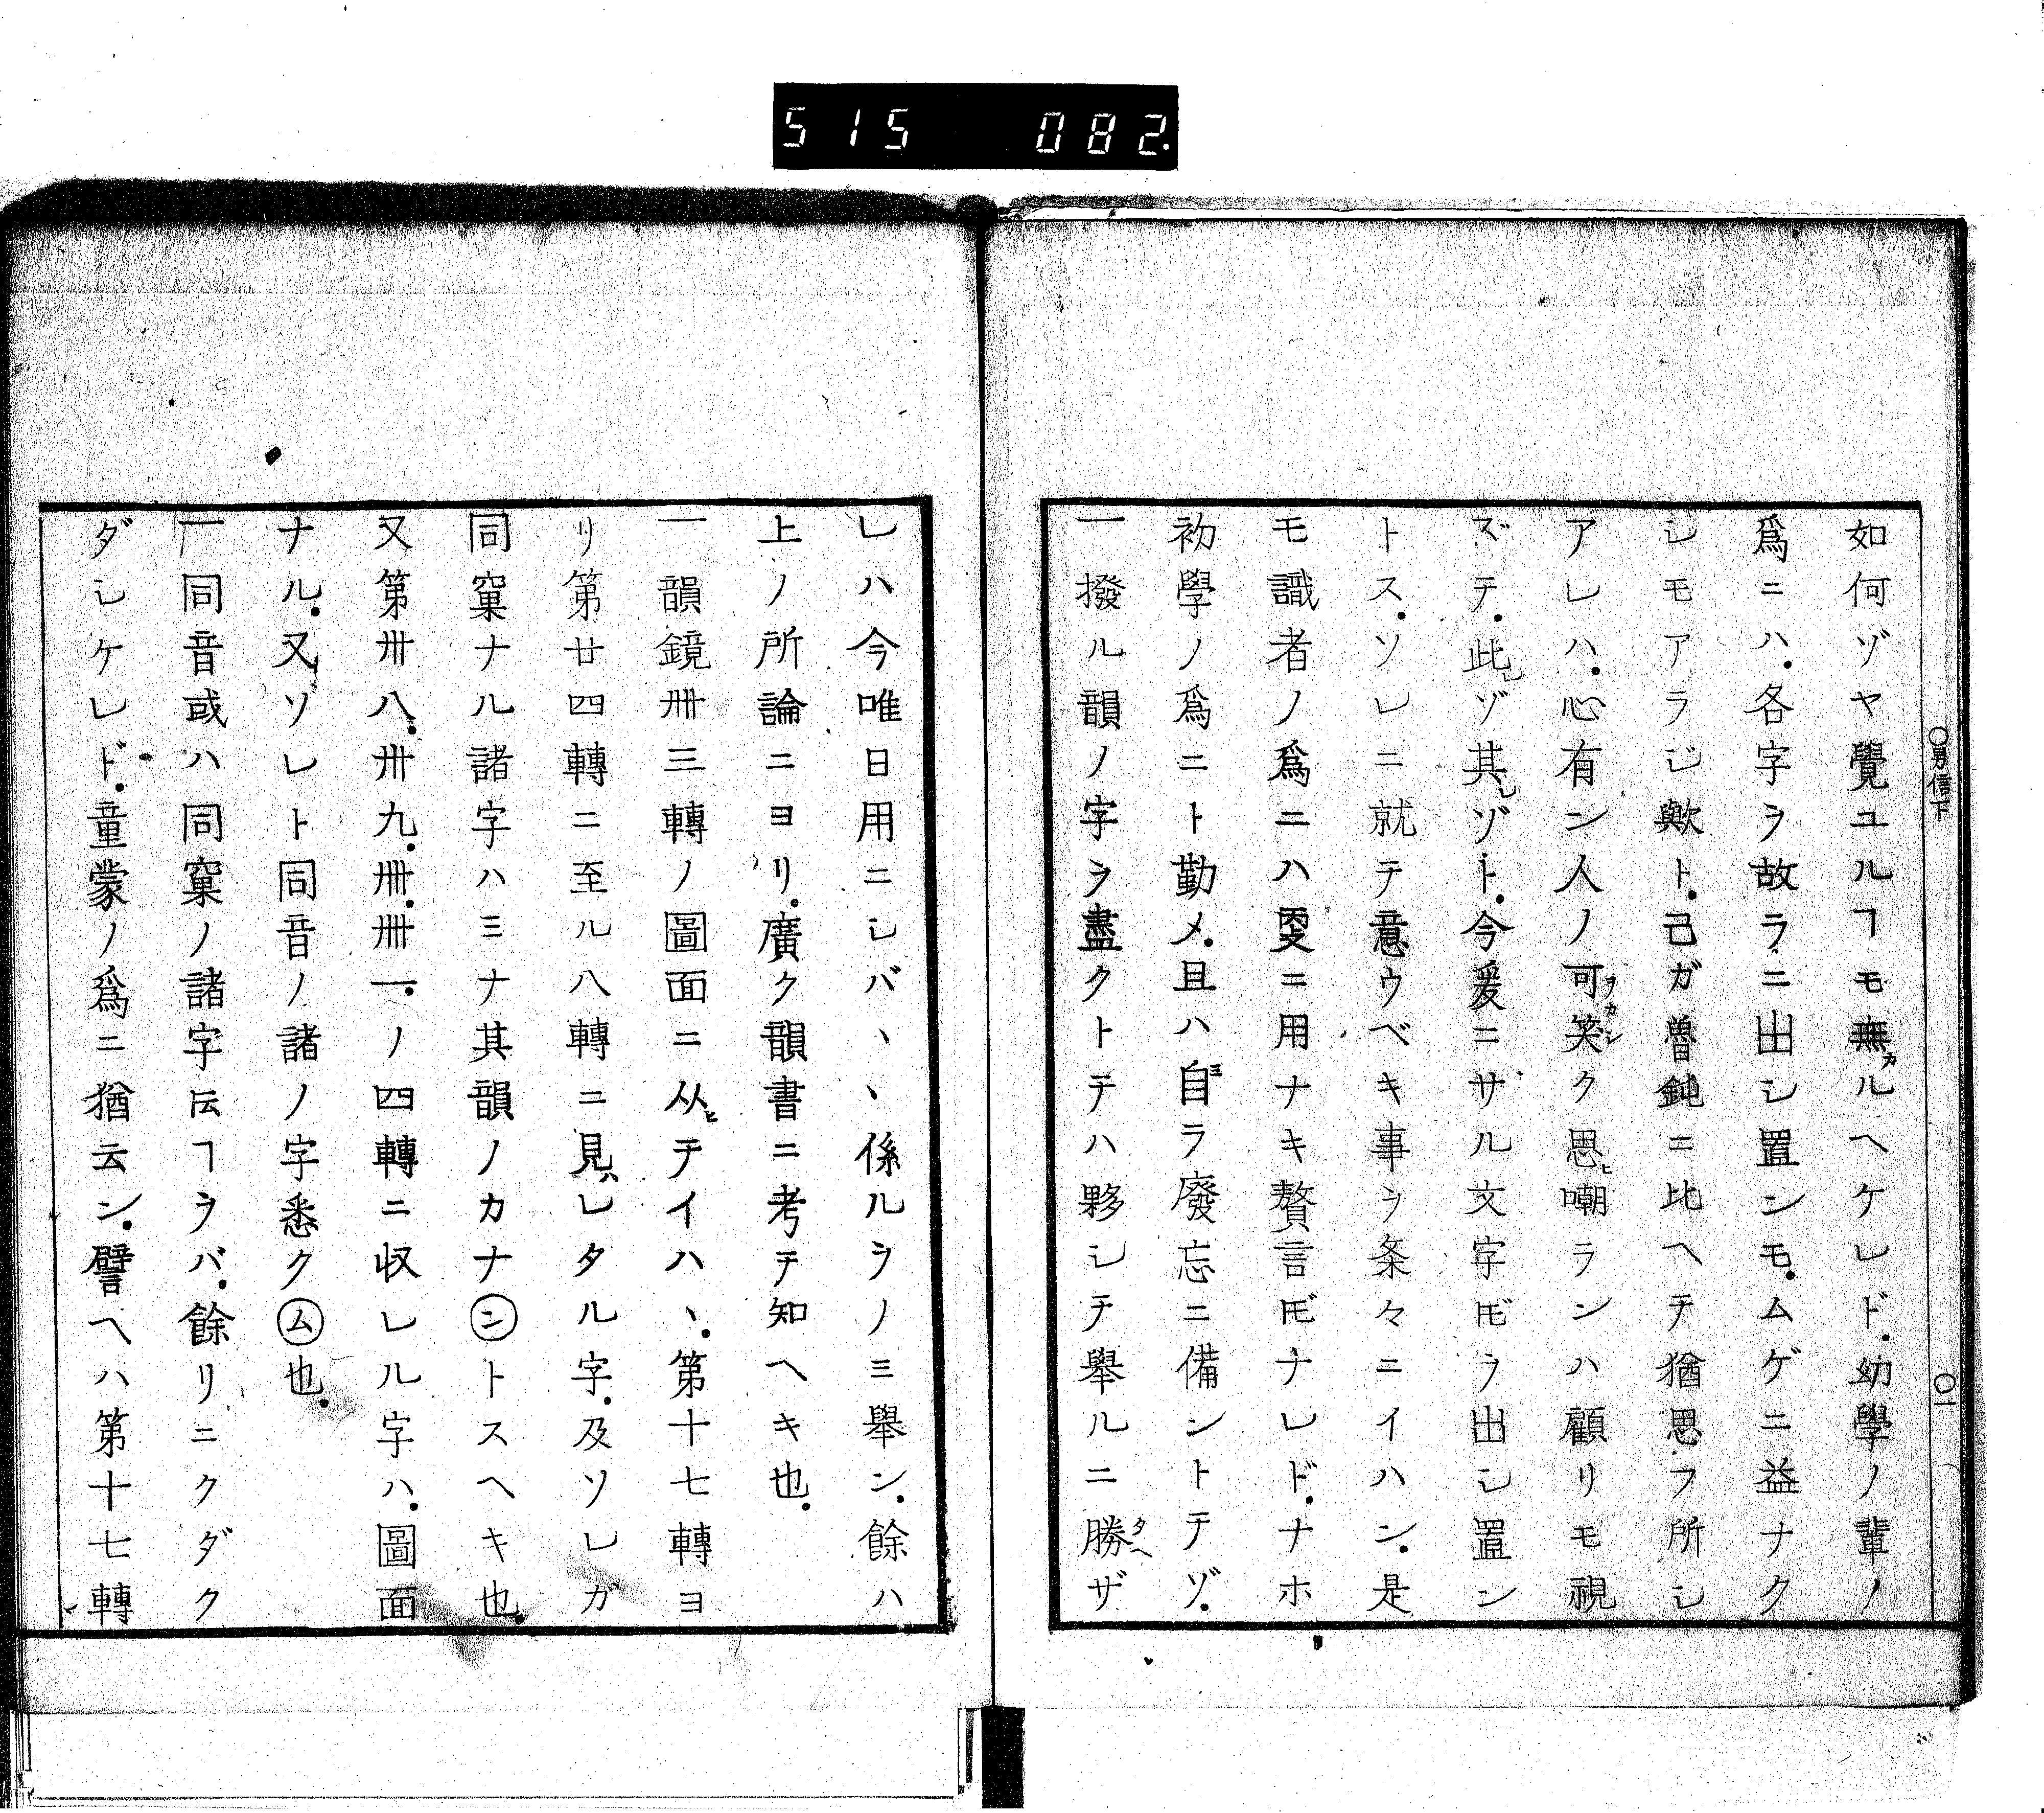 515 082.
〇男信下
〇一
如何ゾヤ覺ユルヿモ無カルヘケレド.幼學ノ輩ノ
爲ニハ.各字ヲ故ラニ出シ置ンモ.ムゲニ益ナク
シモアラジ歟ト.己ガ魯鈍ニ比ヘテ猶思フ所シ
アレハ.心有ン人ノ可笑ヲカシク思ヒ嘲ランハ顧リモ視
ズテ.此レゾ其レゾト.今爰ニサル文字𪜈ヲ出シ置ン
トス.ソレニ就テ意ウベキ事ヲ条々ニイハン.是
モ識者ノ爲ニハ更ニ用ナキ贅言𪜈ナレド.ナホ
初學ノ爲ニト勤メ.且ハ自ミラ廢忘ニ備ントテゾ.
一撥ル韻ノ字ヲ盡クトテハ夥シテ舉ルニ勝タヘザ
レハ今唯日用ニシバ〵〵係ルラノミ舉ン.餘ハ
上ノ所論ニヨリ.廣ク韻書ニ考テ知ヘキ也.
一韻鏡卌三轉ノ圖面ニ从ヒテイハヽ.第十七轉ヨ
リ第廿四轉ニ至ル八轉ニ見ハレタル字.及ソレガ
同窠ナル諸字ハミナ其韻ノカナ㋟ントスヘキ也.
又第卅八.卅九.卌.卌一.ノ四轉ニ収レル字ハ.圖面
ナル.又ソレト同音ノ諸ノ字悉クム也.
一同音或ハ同窠ノ諸字云ヿヲバ.餘リニクダク
ダシケレド.童蒙ノ爲ニ猶云ン.譬ヘハ第十七轉